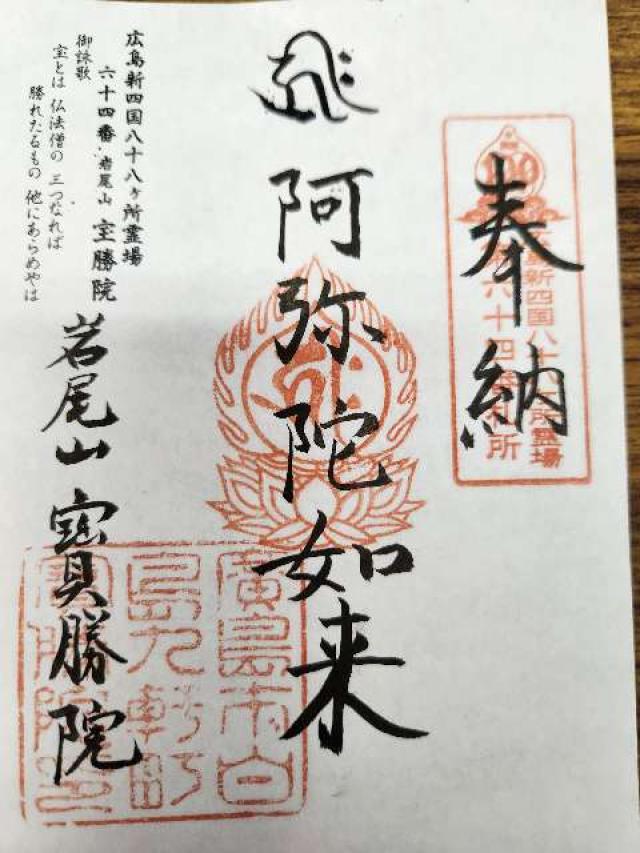 奉納
100
広島新四国八十八ヶ所霊場
第六十四番札所
阿弥陀如来
広島新四国八十八ヶ所霊場
六十四番 岩尾山 宝勝院
御詠歌
宝とは 仏法僧の 三つなれば
勝れたるもの 他にあらめやは
岩尾山 寳勝院
廣島市白
島九軒町
寳勝院印